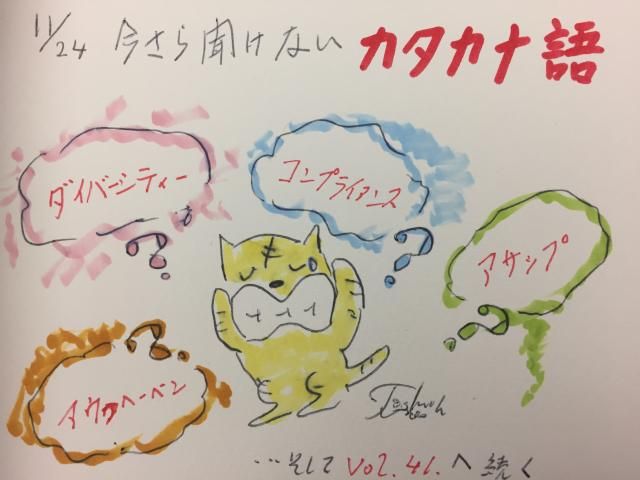 11/24 今さら聞けない カタカナ語
ダイバーシティー
?
コンプライアンス
?
アサップ
?
?
…そして Vol.41.へ続く